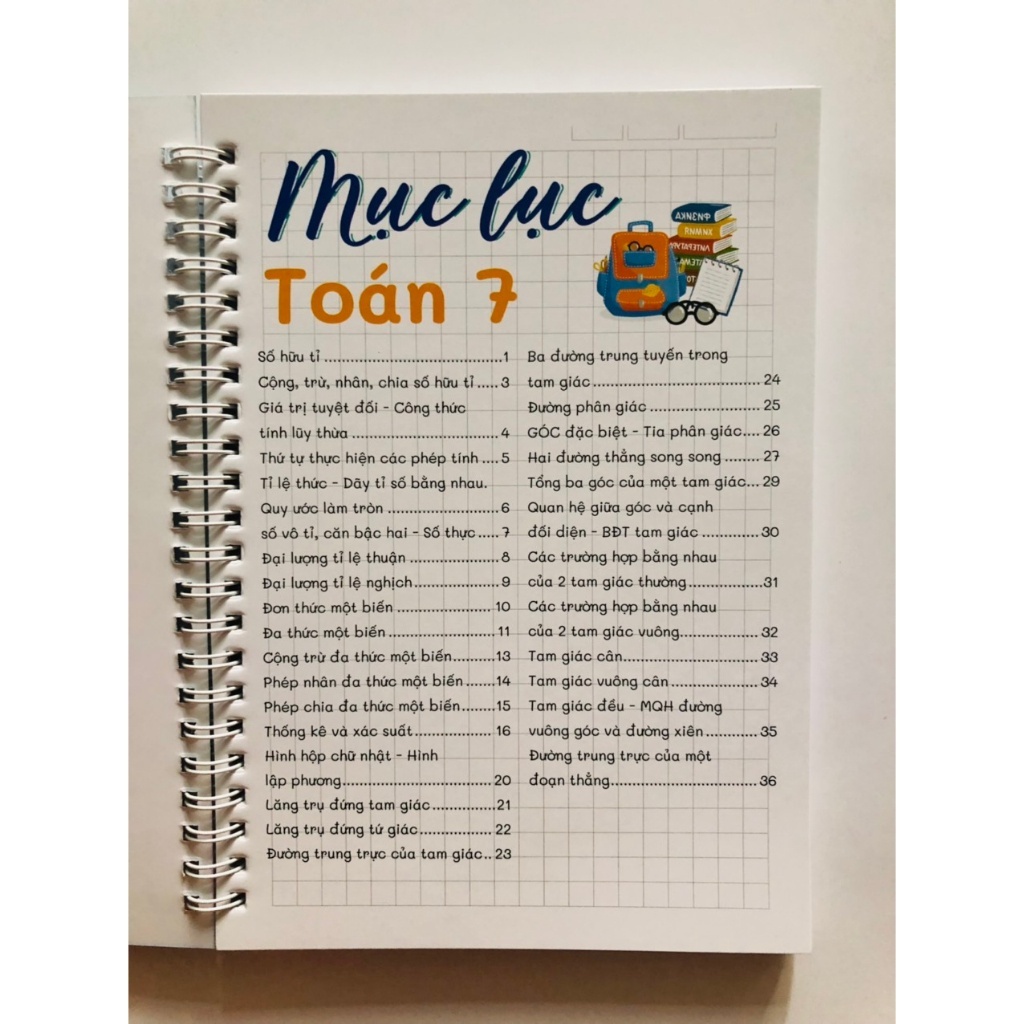 Mục lục
Toán 7
Số hữu tỉ ................................1
Cộng, trừ, nhân, chia số hữu tỉ ..... 3
Giá trị tuyệt đối - Công thức
tính lũy thừa ........................... 4
Thứ tự thực hiện các phép tính .... 5
Tỉ lệ thức - Dãy tỉ số bằng nhau.
Quy ước làm tròn ..................... 6
số vô tỉ, căn bậc hai - Số thực ..... 7
Đại lượng tỉ lệ thuận ................. 8
Đại lượng tỉ lệ nghịch ................ 9
Đơn thức một biến ................... 10
Đa thức một biến ..................... 11
Cộng trừ đa thức một biến ......... 13
Phép nhân đa thức một biến ...... 14
Phép chia đa thức một biến ....... 15
Thống kê và xác suất ............... 16
Hình hộp chữ nhật - Hình
lập phương ............................ 20
Lăng trụ đứng tam giác ............. 21
Lăng trụ đứng tứ giác ............... 22
Đường trung trực của tam giác .. 23
Ba đường trung tuyến trong
tam giác ............................... 24
Đường phân giác .................... 25
GÓC đặc biệt - Tia phân giác .... 26
Hai đường thẳng song song ........ 27
Tổng ba góc của một tam giác ... 29
Quan hệ giữa góc và cạnh
đối diện - BĐT tam giác ............. 30
Các trường hợp bằng nhau
của 2 tam giác thường .............. 31
Các trường hợp bằng nhau
của 2 tam giác vuông ............... 32
Tam giác cân ......................... 33
Tam giác vuông cân ................ 34
Tam giác đều - MQH đường
vuông góc và đường xiên .......... 35
Đường trung trực của một
đoạn thẳng ............................ 36